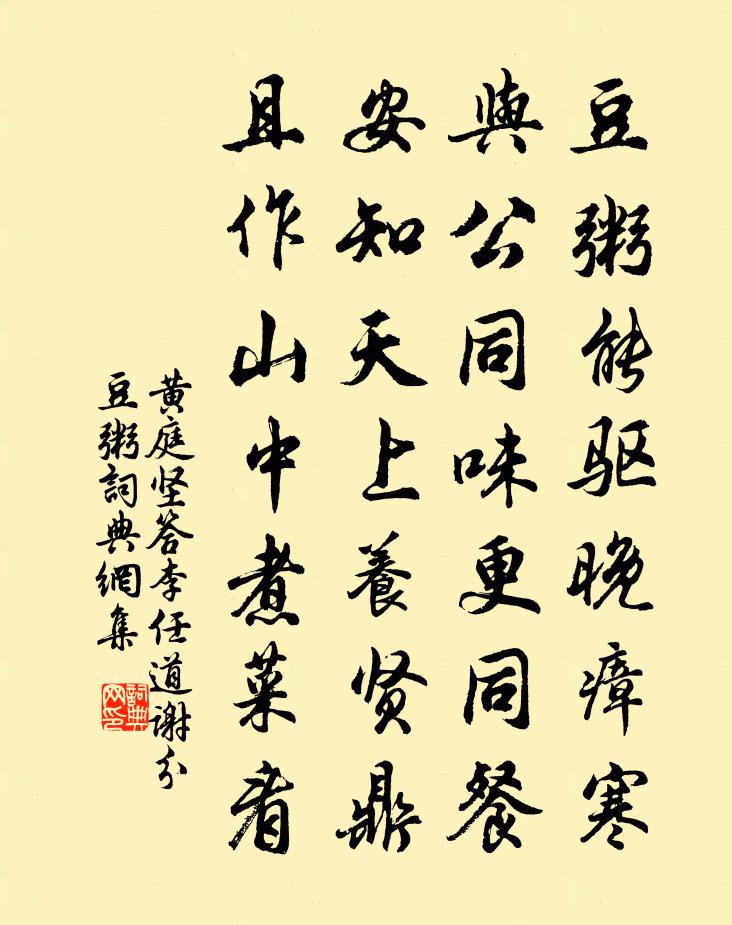 豆粥能驱晚瘴寒
與公同味更同餐
安知天上養贤鼎
且作山中煮菜看
黄庭坚答李任道謝分
豆粥詞典網集
詞典网印